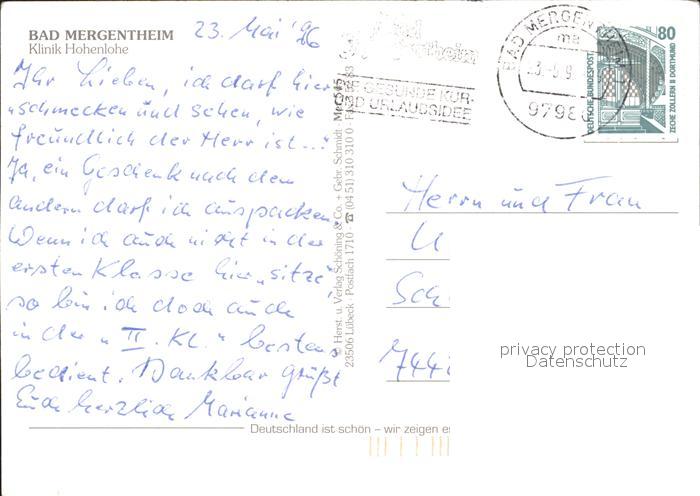 BAD MERGENTHEIM
Klinik Hohenlohe
23. Mai '96
Ihr Lieben, ich darf hier
"schmecken und sehen, wie
freundlich der Herr ist..."
Ja, ein Geschenk nach dem
andern darf ich auspacken.
Wenn ich auch nicht in der
ersten Klasse hier "sitze",
so bin ich doch auch
in der "II. Kl." bestens
bedient. Dankbar grüßt
Euch herzlich Marianne
Deutschland ist schön – wir zeigen es
© Herst. u. Verlag Schöning & Co. + Gebr. Schmidt ·
23506 Lübeck · Postfach 1710 · ☎ (04 51) 310 310 0
GESUNDE KUR-
UND URLAUBSIDEE
BAD MERGENTHEIM
ma
9798
80
DEUTSCHE BUNDESPOST
ZECHE ZOLLERN II DORTMUND
Herrn und Frau
U
Sch
744
privacy protection
Datenschutz